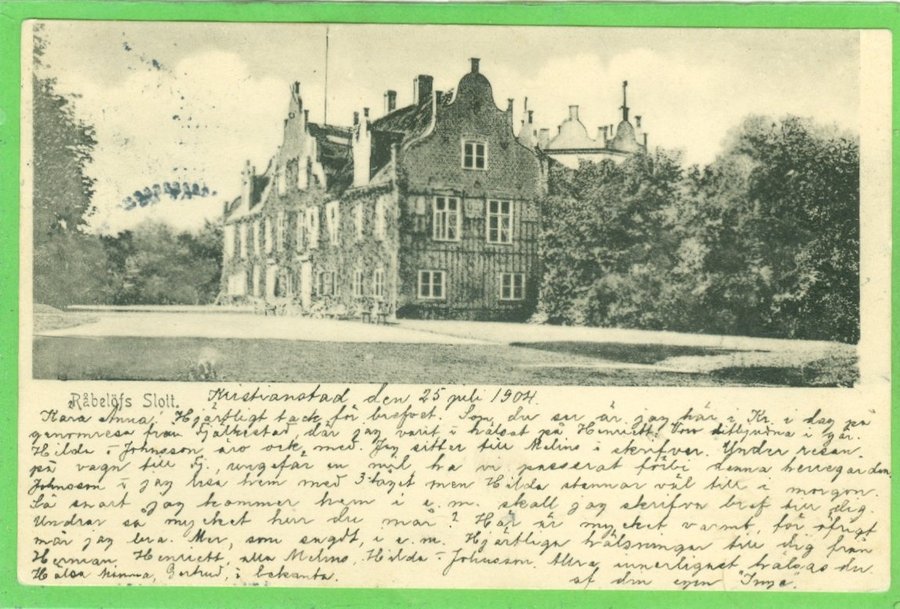 Råbelöfs Slott.
Kristianstad den 25 juli 1904.
Kära Anna! Hjärtligt tack för brefvet. Som du ser är jag här i Kr. i dag på
genomresa från Fjälkestad, där jag varit i hälsat på Henriett. Vore ditbjudna i går.
Hilda i Johnsson äro ock med. Jag sitter till Melins i skrifver. Under resan
på vagn till Fj., ungefär en mil ha vi passerat förbi denna herregården.
Johnsson i jag resa hem med 3 taget men Hilda stannar väl till i morgon.
Så snart jag kommer hem i e. m. skall jag skrifva bref till dig.
Undrar så mycket hur du mår? Här är mycket varmt, för öfrigt
mår jag bra. Mer, som sagdt, i e. m. Hjärtliga hälsningar till dig från
Herman, Henriett, alla Melins, Hilda i Johnsson. Allra innerligast hälsas du
Hälsa mamma, Gertrud, i bekanta. af din egen "Inga"